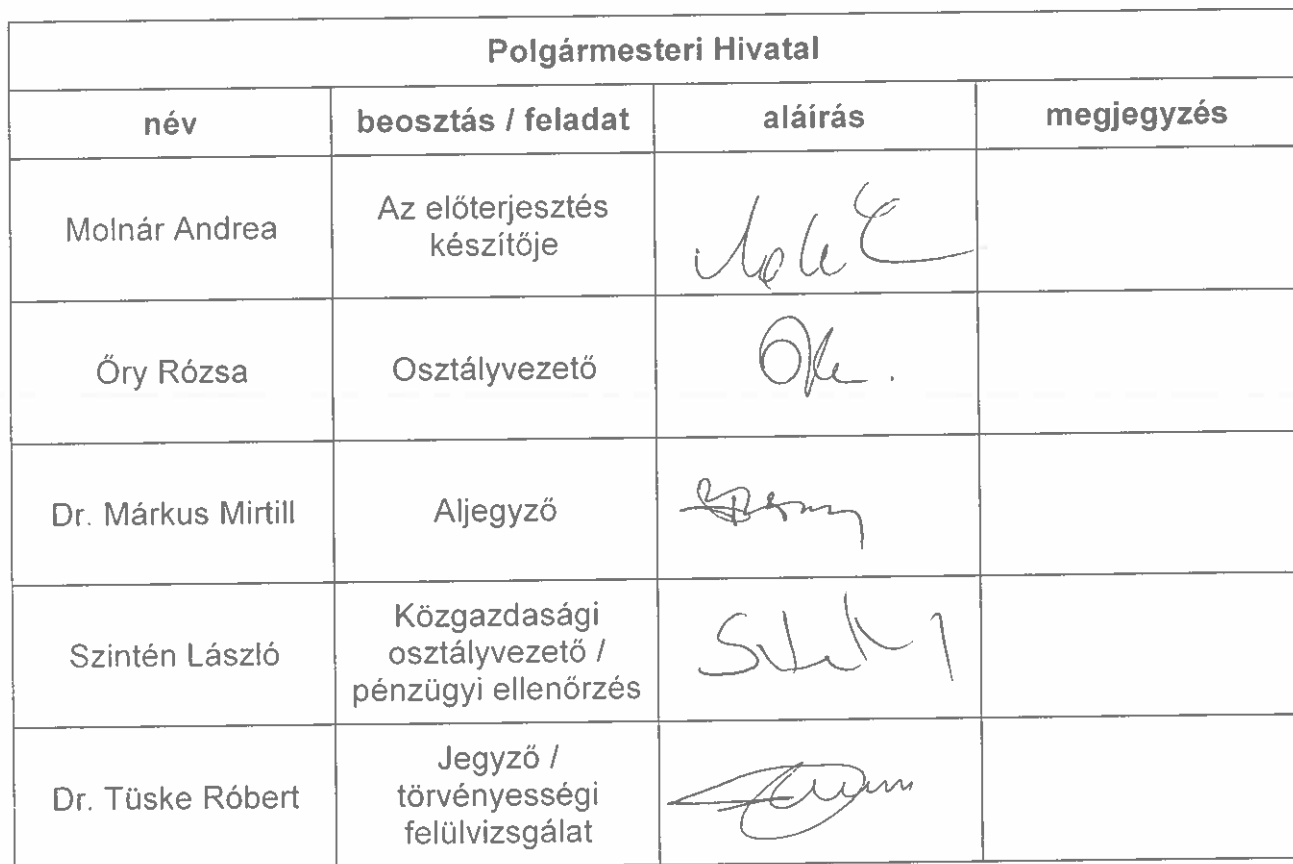 Polgármesteri Hivatal
név beosztás / feladat aláírás megjegyzés
Molnár Andrea
Az előterjesztés
készítője
Őry Rózsa
Osztályvezető
Dr. Márkus Mirtill
Aljegyző
Szintén László
Közgazdasági
osztályvezető /
pénzügyi ellenőrzés
Dr. Tüske Róbert
Jegyző /
törvényességi
felülvizsgálat